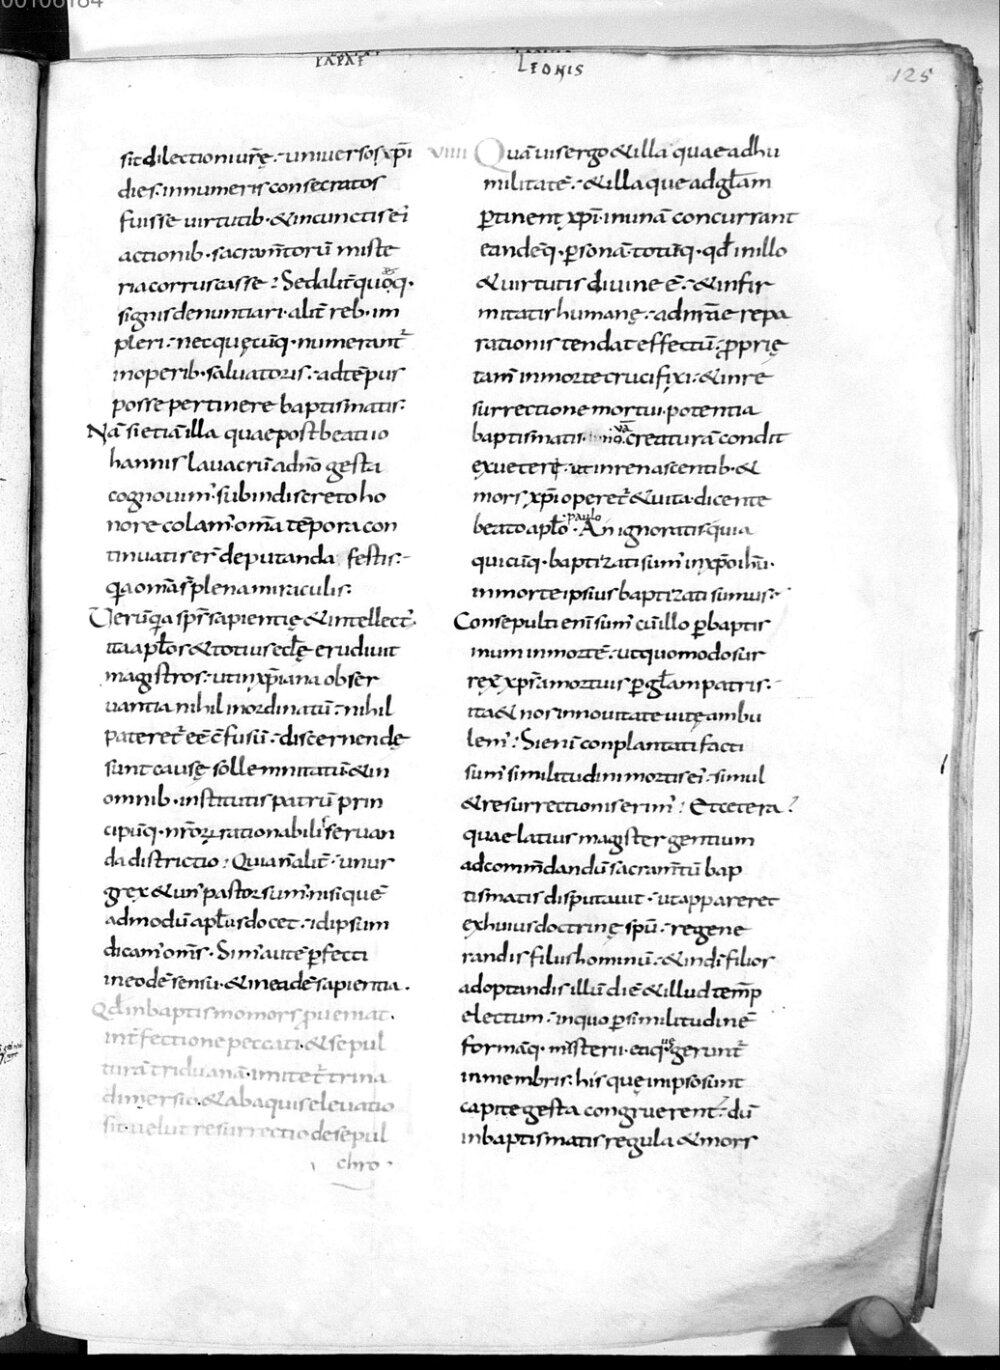 00106184
PAPAE LEONIS
125
sit dilectioni vrę̄· universos xp̄i
dies· innumeris consecratos
fuisse virtutib· & in cunctis ei
actionib· sacram̄torū miste
ria corruscasse· Sed alit̄ quosq·
signis denuntiari· alit̄ reb· im
pleri· nec quęcūq· numerant̄
in operib· salvatoris· ad tēpus
posse pertinere baptismatis·
Nā si etiā illa quae post beati io
hannis lavacrū ad n̄o gesta
cognovim· sub indiscreto ho
nore colam· om̄a tēpora con
tinuatis er̄ deputanda festis·
q̄a om̄a s̄ plena miraculis·
Verūq̄a sp̄s sapientię & intellect·
ita apl̄os & totius ecl̄ę erudivit
magistros· ut in xp̄iana obser
vantia nihil inordinatū· nihil
pateret̄ eē c̄fusū· discernendę
sunt causę sollemnitatū· & in
omnib· institutis patrū prin
cipūq· nr̄orū rationabilis servan
da districtio· Quia n̄ alit̄· unus
grex & un' pastor sum· nisi quē
admodū apl̄us docet· id ipsum
dicam' om̄s· Sim' autē p̄fecti
in eodē sensu· & in eadē sapientia·
Qd̄ in baptismo mors p̄veniat·
int̄fectione peccati· & sepul
turā triduanā· imitet̄ trina
dimersio· & ab aquis elevatio
sit· velut resurrectio de sepul
chro·
viiii Quāvis ergo & illa quae ad hu
militatē· & illa que ad gl̄am
p̄tinent xp̄i· in unā concurrant
eandēq· p̄sonā· totūq· qd̄ in illo
& virtutis divine ē· & infir
mitatis humanę· ad nr̄ae repa
rationis tendat effectū· p̄prię
tam̄ in morte crucifixi· & in re
surrectione mortui· potentia
baptismatis novā creaturā condit
ex veterę· ut in renascentib· &
mors xp̄i operet̄ & vita· dicente
beato apl̄o paulo· An ignoratis quia
quicūq· baptizati sum' in xp̄o ih̄u·
in morte ipsius baptizati sumus·
Consepulti enī sum' cū illo p̄ baptis
mum in mortē· ut quomodo sur
rex̄ xp̄s a mortuis p̄ gl̄am patris·
ita & nos in novitate vitę ambu
lem'· Si enī conplantati facti
sum' similitudini mortis ei· simul
& resurrectionis erim'· Et cetera·
quae latius magister gentium
ad comm̄dandū sacram̄tū bap
tismatis disputavit· ut appareret
ex huius doctrinę spū· regene
randis filiis hominū· & in dī filios
adoptandis illū diē & illud temp̄
electum· in quo p̄ similitudinē
formāq· misterii· eaquę gerunt̄
in membris· his quę in ipso sunt
capite gesta congruerent· dū
in baptismatis regula & mors